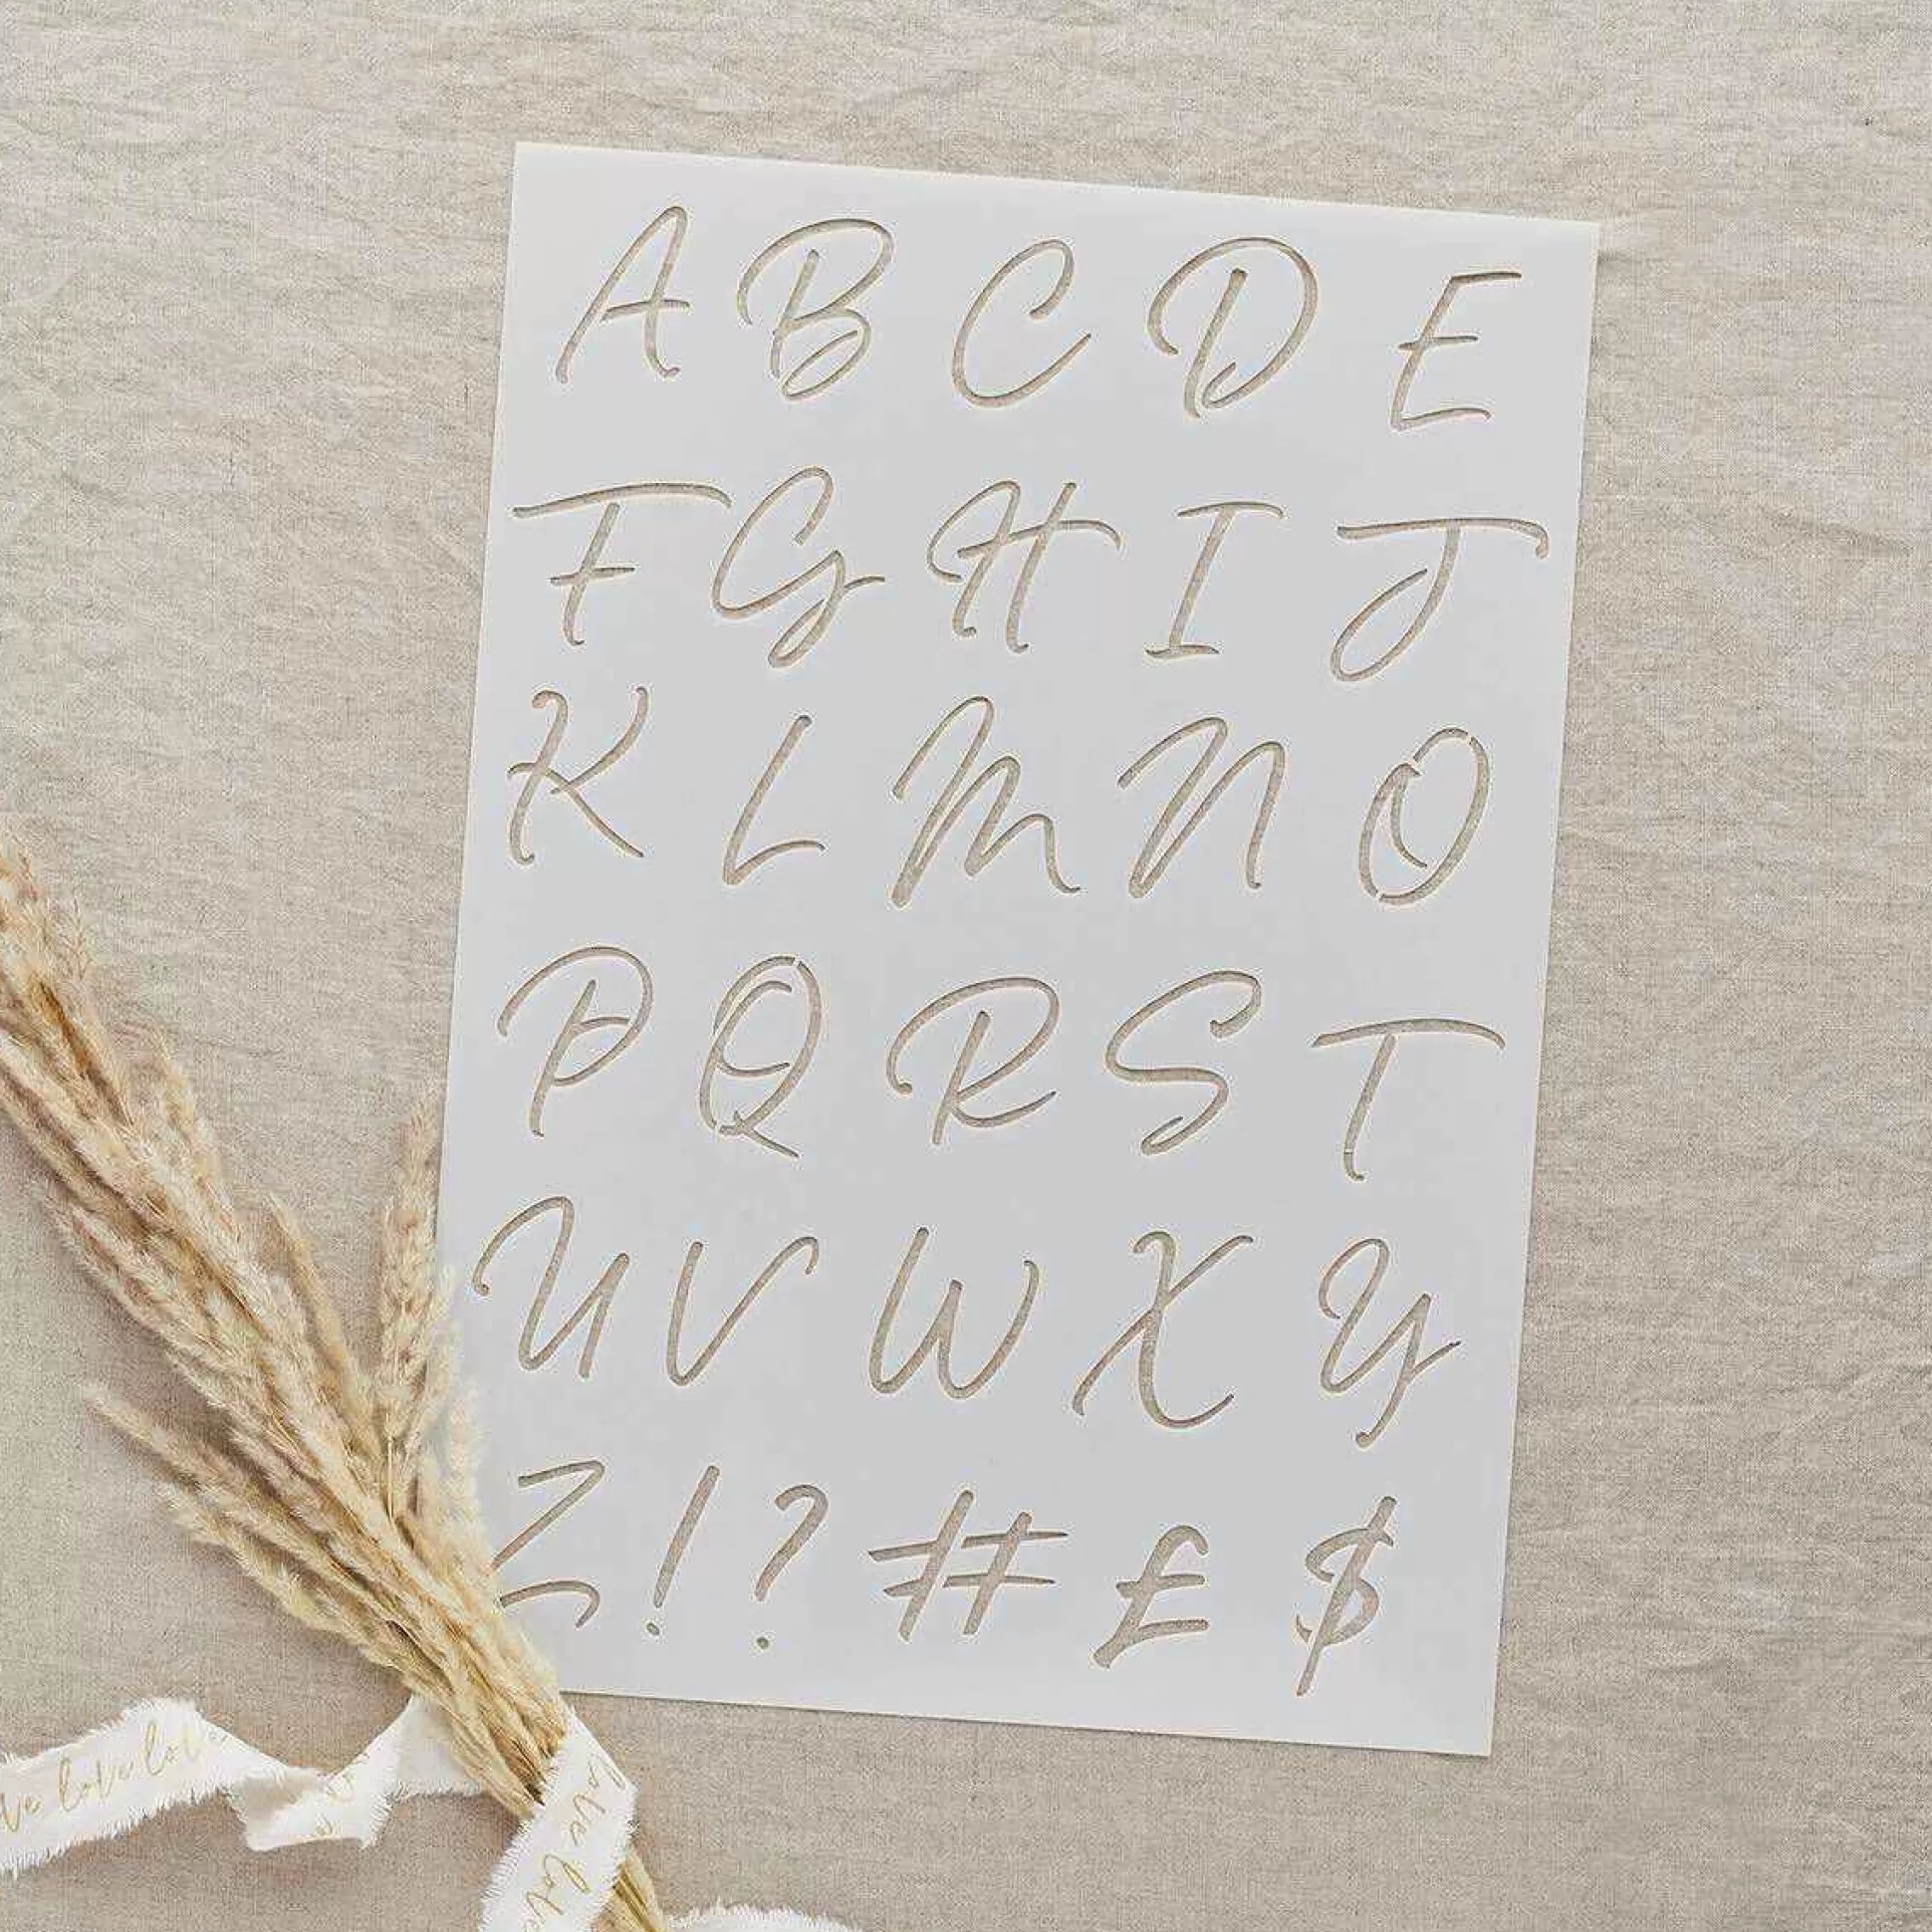 A B C D E
F G H I J
K L M N O
P Q R S T
U V W X Y
Z ! ? # £ $
ve love love
love love